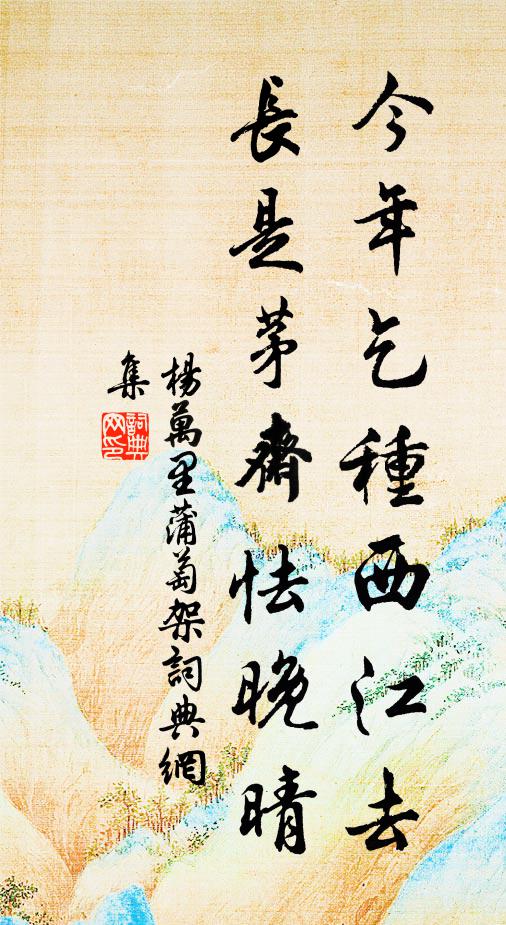 今年乞種西江去
長是茅齋怯晚晴
楊萬里蒲萄架詞典網
集
詞典網印